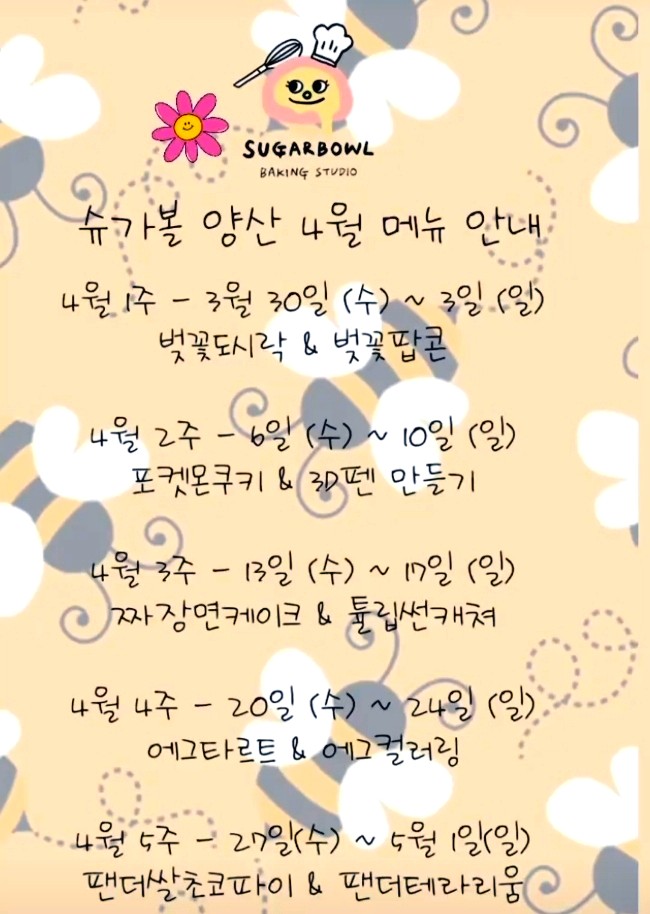 SUGARBOWL
BAKING STUDIO
슈가볼 양산 4월 메뉴 안내
4월 1주 - 3월 30일 (수) ~ 3일 (일)
벚꽃도시락 & 벚꽃팝콘
4월 2주 - 6일 (수) ~ 10일 (일)
포켓몬쿠키 & 3D펜 만들기
4월 3주 - 13일 (수) ~ 17일 (일)
짜장면케이크 & 튤립썬캐쳐
4월 4주 - 20일 (수) ~ 24일 (일)
에그타르트 & 에그컬러링
4월 5주 - 27일(수) ~ 5월 1일(일)
팬더쌀초코파이 & 팬더테라리움